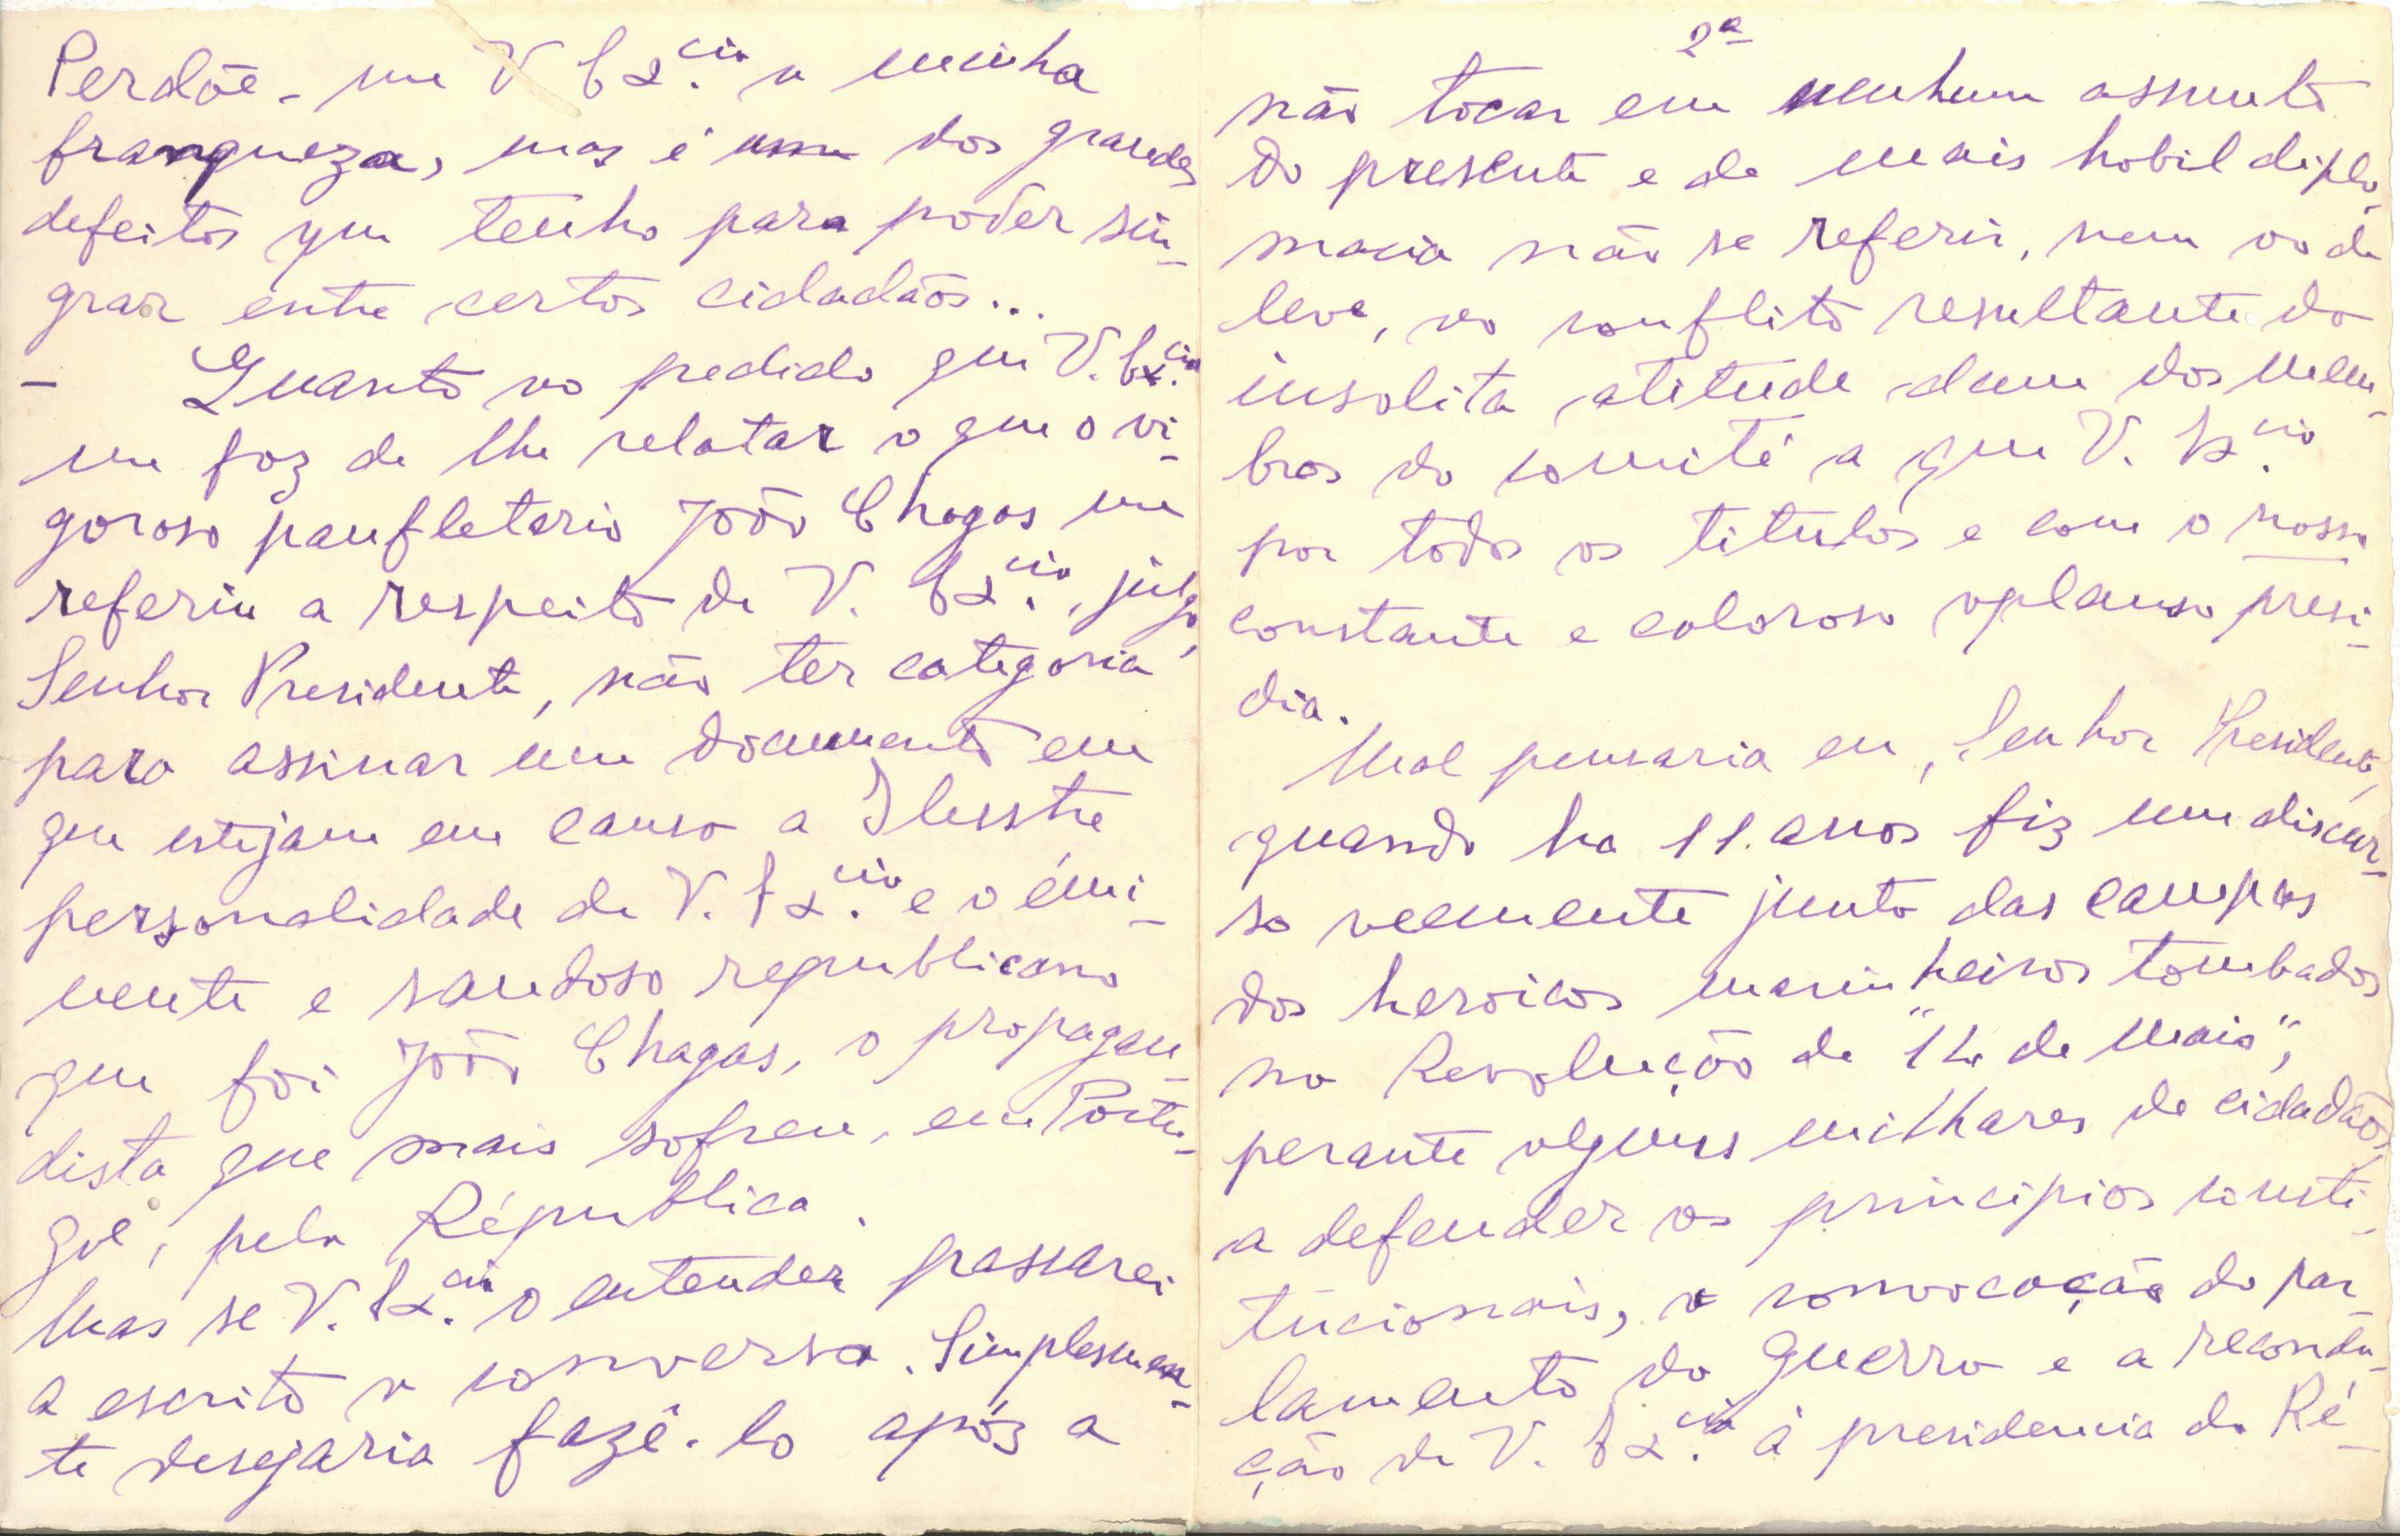 Perdôe-me V. Ex.cia a minha
franqueza, mas é um dos grandes
defeitos que tenho para poder sin-
grar entre certos cidadãos...
— Quanto ao pedido que V. Ex.cia
me faz de lhe relatar o que o vi-
goroso panfletario João Chagas me
referiu a respeito de V. Ex.cia, julgo,
Senhor Presidente, não ter categoria
para assinar um documento em
que estejam em causa a Ilusstre
personalidade de V. Ex.cia e o émi-
nente e saudoso republicano
que foi João Chagas, o propagan-
dista que mais sofreu, em Portu-
gal, pela Républica.
Mas se V. Ex.cia o entender passarei
a escrito a conversa. Simplesmen-
te desejaria fazê-lo após a
2ª
não tocar em nenhum assunto
do presente e de mais habil diplo-
macia não se referir, nem ao de
leve, ao conflito resultante da
insolita atitude dum dos mem-
bros do comité a que V. Ex.cia
por todos os titulos e com o nosso
constante e caloroso aplauso presi-
dia.
Mal pensaria eu, Senhor Presidente,
quando ha 11 anos fiz um discur-
so veemente junto das campas
dos heroicos marinheiros tombados
na Revolução de "14 de Maio",
perante alguns milhares de cidadãos,
a defender os principios consti-
tucionais, a convocação do par-
lamento da guerra e a recondu-
ção de V. Ex.cia á presidencia da Ré-